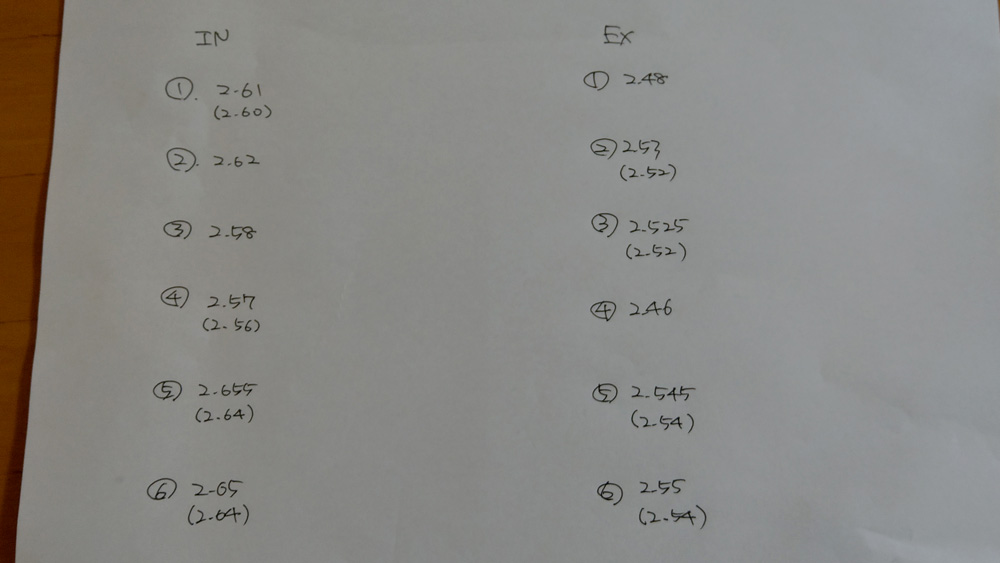 IN
①. 2.61
(2.60)
②. 2.62
③ 2.58
④ 2.57
(2.56)
⑤ 2.655
(2.64)
⑥ 2.65
(2.64)
EX
① 2.48
② 2.53
(2.52)
③ 2.525
(2.52)
④ 2.46
⑤ 2.545
(2.54)
⑥ 2.55
(2.54)